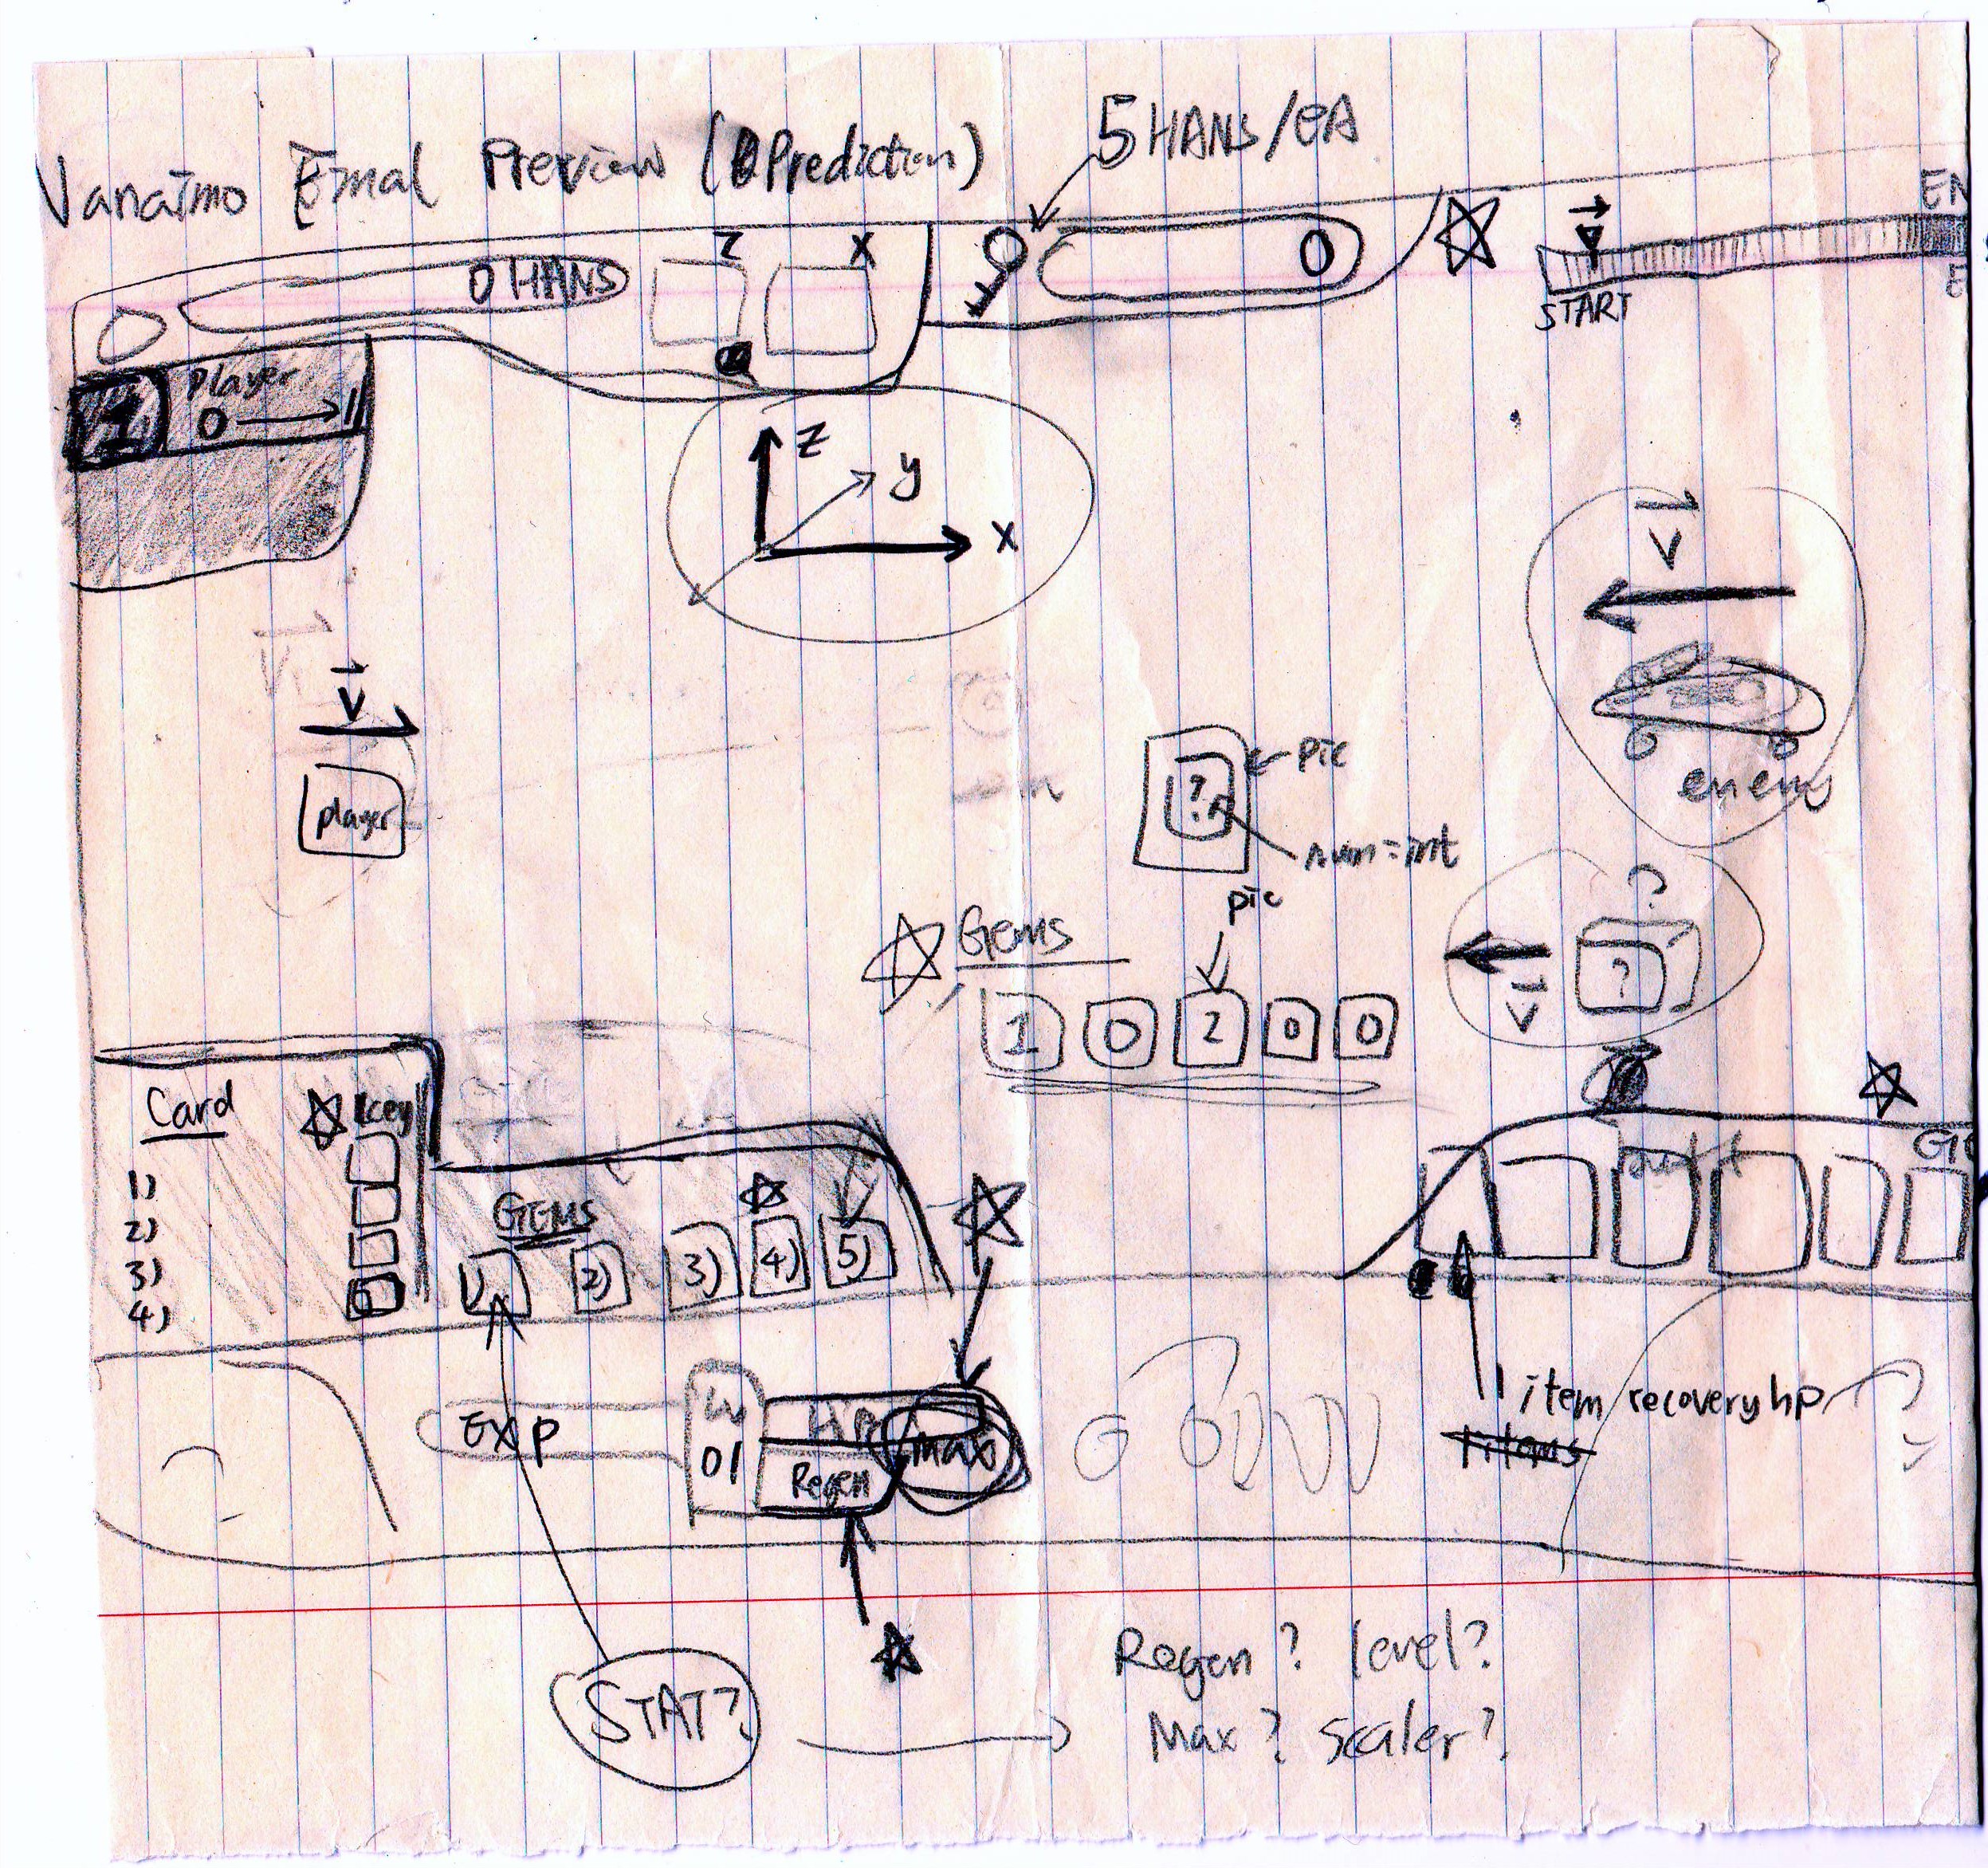 Vanaimo Final Preview (Prediction)
5 HANS/EA
0 HANS
Z
X
0
START
EN
E
1
Player
0
11
Z
y
X
V
V
player
enemy
?
pic
num=int
pic
?
?
V
Gems
1 0 2 0 0
Card
key
1)
2)
3)
4)
0
GEMS
1) 2) 3) 4) 5)
EXP
LV
01
HP
Regen
max
1 item recovery hp
STAT?
Regen? level?
Max? scaler?